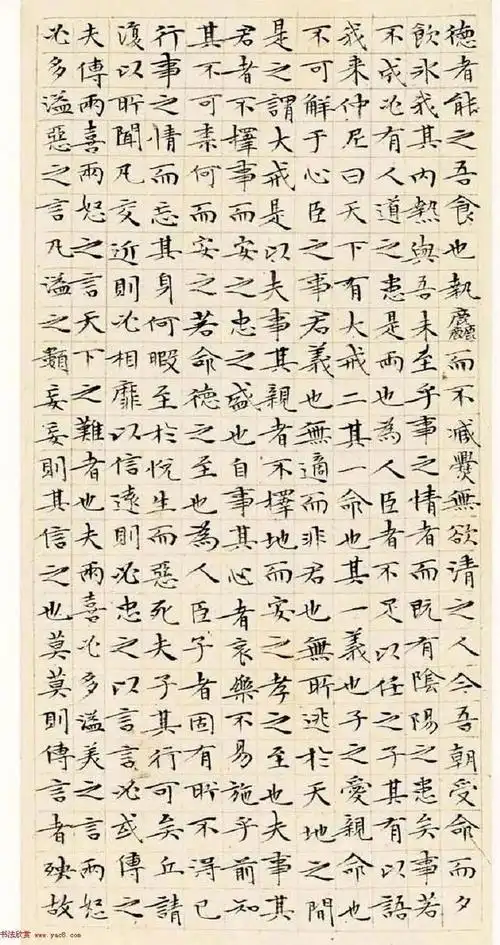 德者能之吾食也執麤而不減爨無欲清之人今吾朝受命而夕
飲冰我其內熱與吾未至乎事之情者而既有陰陽之患矣事若
不成必有人道之患是兩也為人臣者不足以任之子其有以語
我來仲尼曰天下有大戒二其一命也其一義也子之愛親命也
不可解于心臣之事君義也無適而非君也無所逃於天地之間
是之謂大戒是以夫事其親者不擇地而安之孝之至也夫事其
君者不擇事而安之忠之盛也自事其心者哀樂不易施乎前知
其不可柰何而安之若命德之至也為人臣子者固有所不得已
行事之情而忘其身何暇至於悅生而惡死夫子其行可矣丘請
復以所聞凡交近則必相靡以信遠則必忠之以言言必或傳之
夫傳兩喜兩怒之言天下之難者也夫兩喜必多溢美之言兩怒
必多溢惡之言凡溢之類妄妄則其信之也莫莫則傳言者殃故
书法欣赏 www.yac8.com